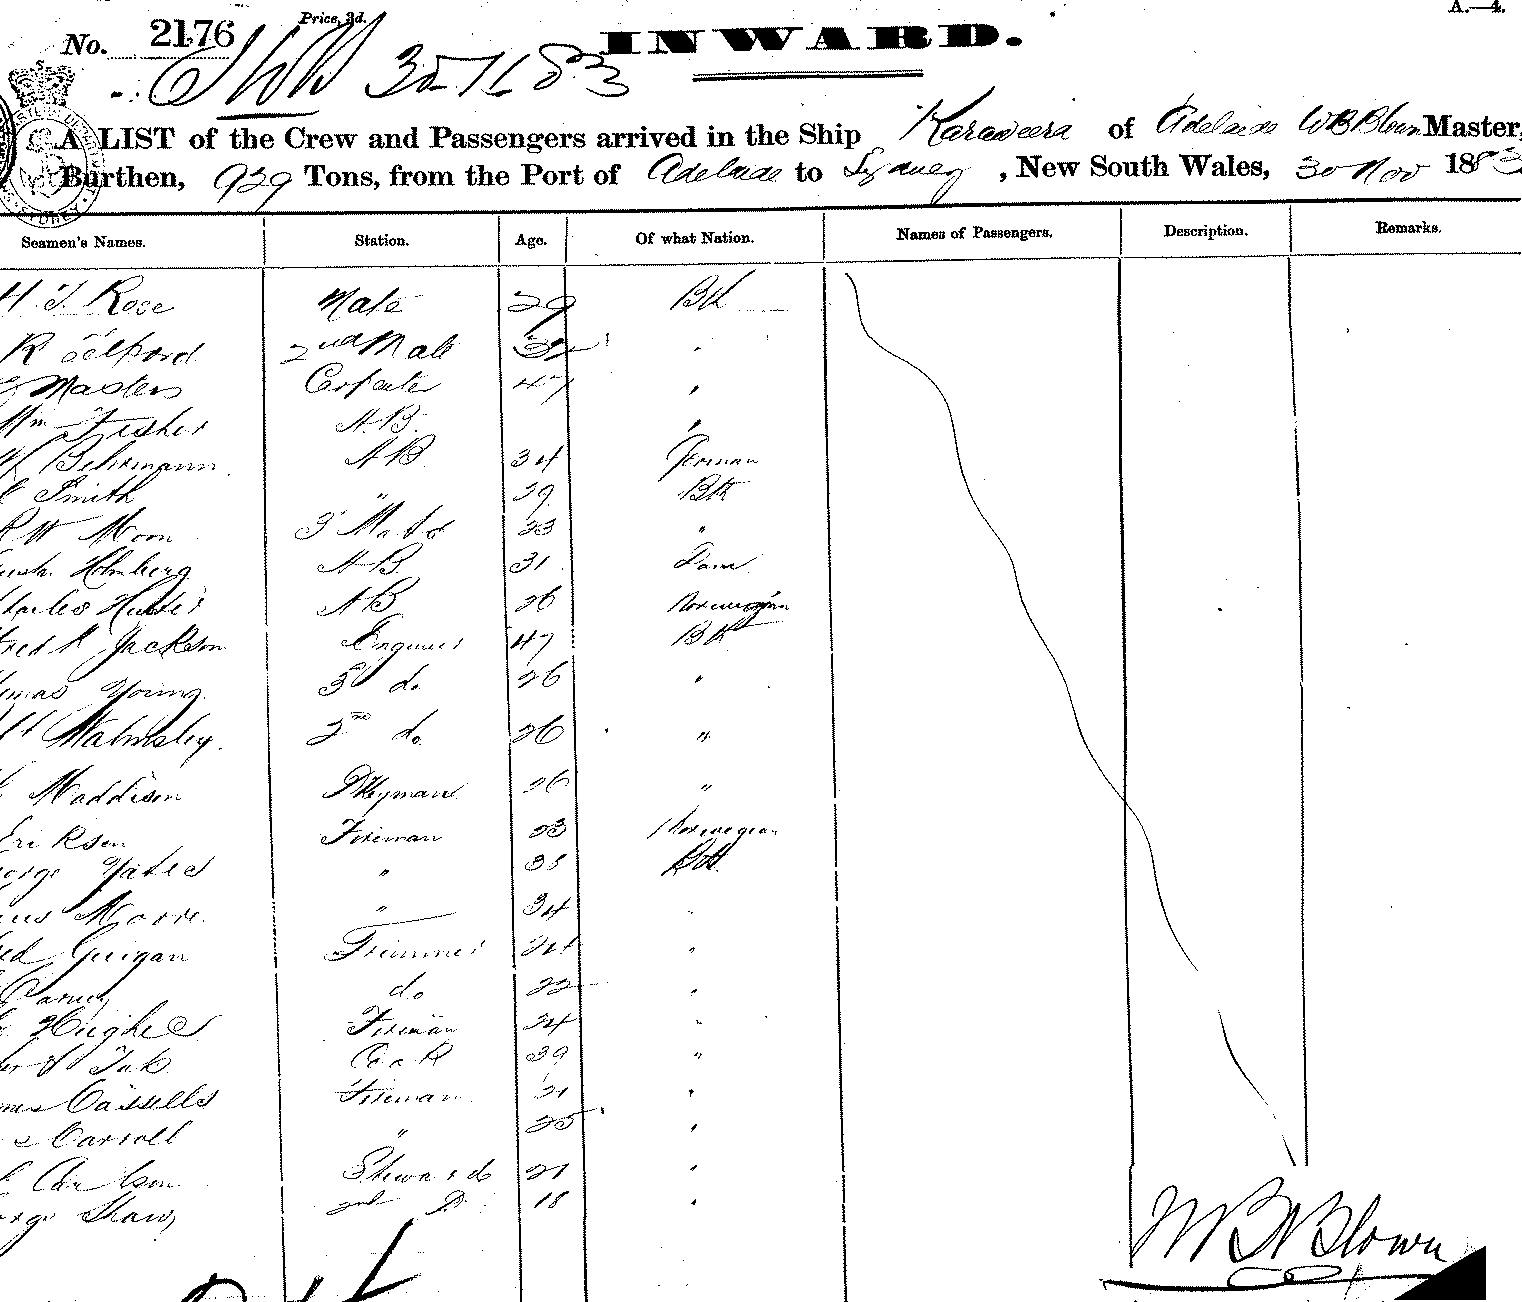 Price, 3d.
A.—4.
No. 2176
INWARD.
A LIST of the Crew and Passengers arrived in the Ship Karaweera of Adelaide Master,
Burthen, 929 Tons, from the Port of Adelaide to Sydney, New South Wales, 30 Nov 1883
Seamen's Names. Station. Age. Of what Nation. Names of Passengers. Description. Remarks.
H. J. Rose Mate 29 Bth
R Telford 2nd Mate 32 "
Masters Carpenter 47 "
Wm Fisher A.B. "
Behrmann A B 34 German
C Smith " 29 Bth
R W Moon 3 Mate 23 "
Holmberg A B. 31
Charles Hunter A B 26 Norwegian
Fred K Jackson Engineer 47 Bth
Thomas Young 3 do 26 "
Walmsley. 2nd do 26 "
Maddison Dkeyman 26 "
Eriksen Fireman 23 Norwegian
George Yates " 35
Moore " 34 "
Guigan Trimmer 24 "
Carney do 22 "
Hughes Fireman 24 "
Cook 39 "
James Cassells Fireman 21 "
Carroll " 25 "
Carlson Stewards 21 "
George Shaw 2nd Do 18 "